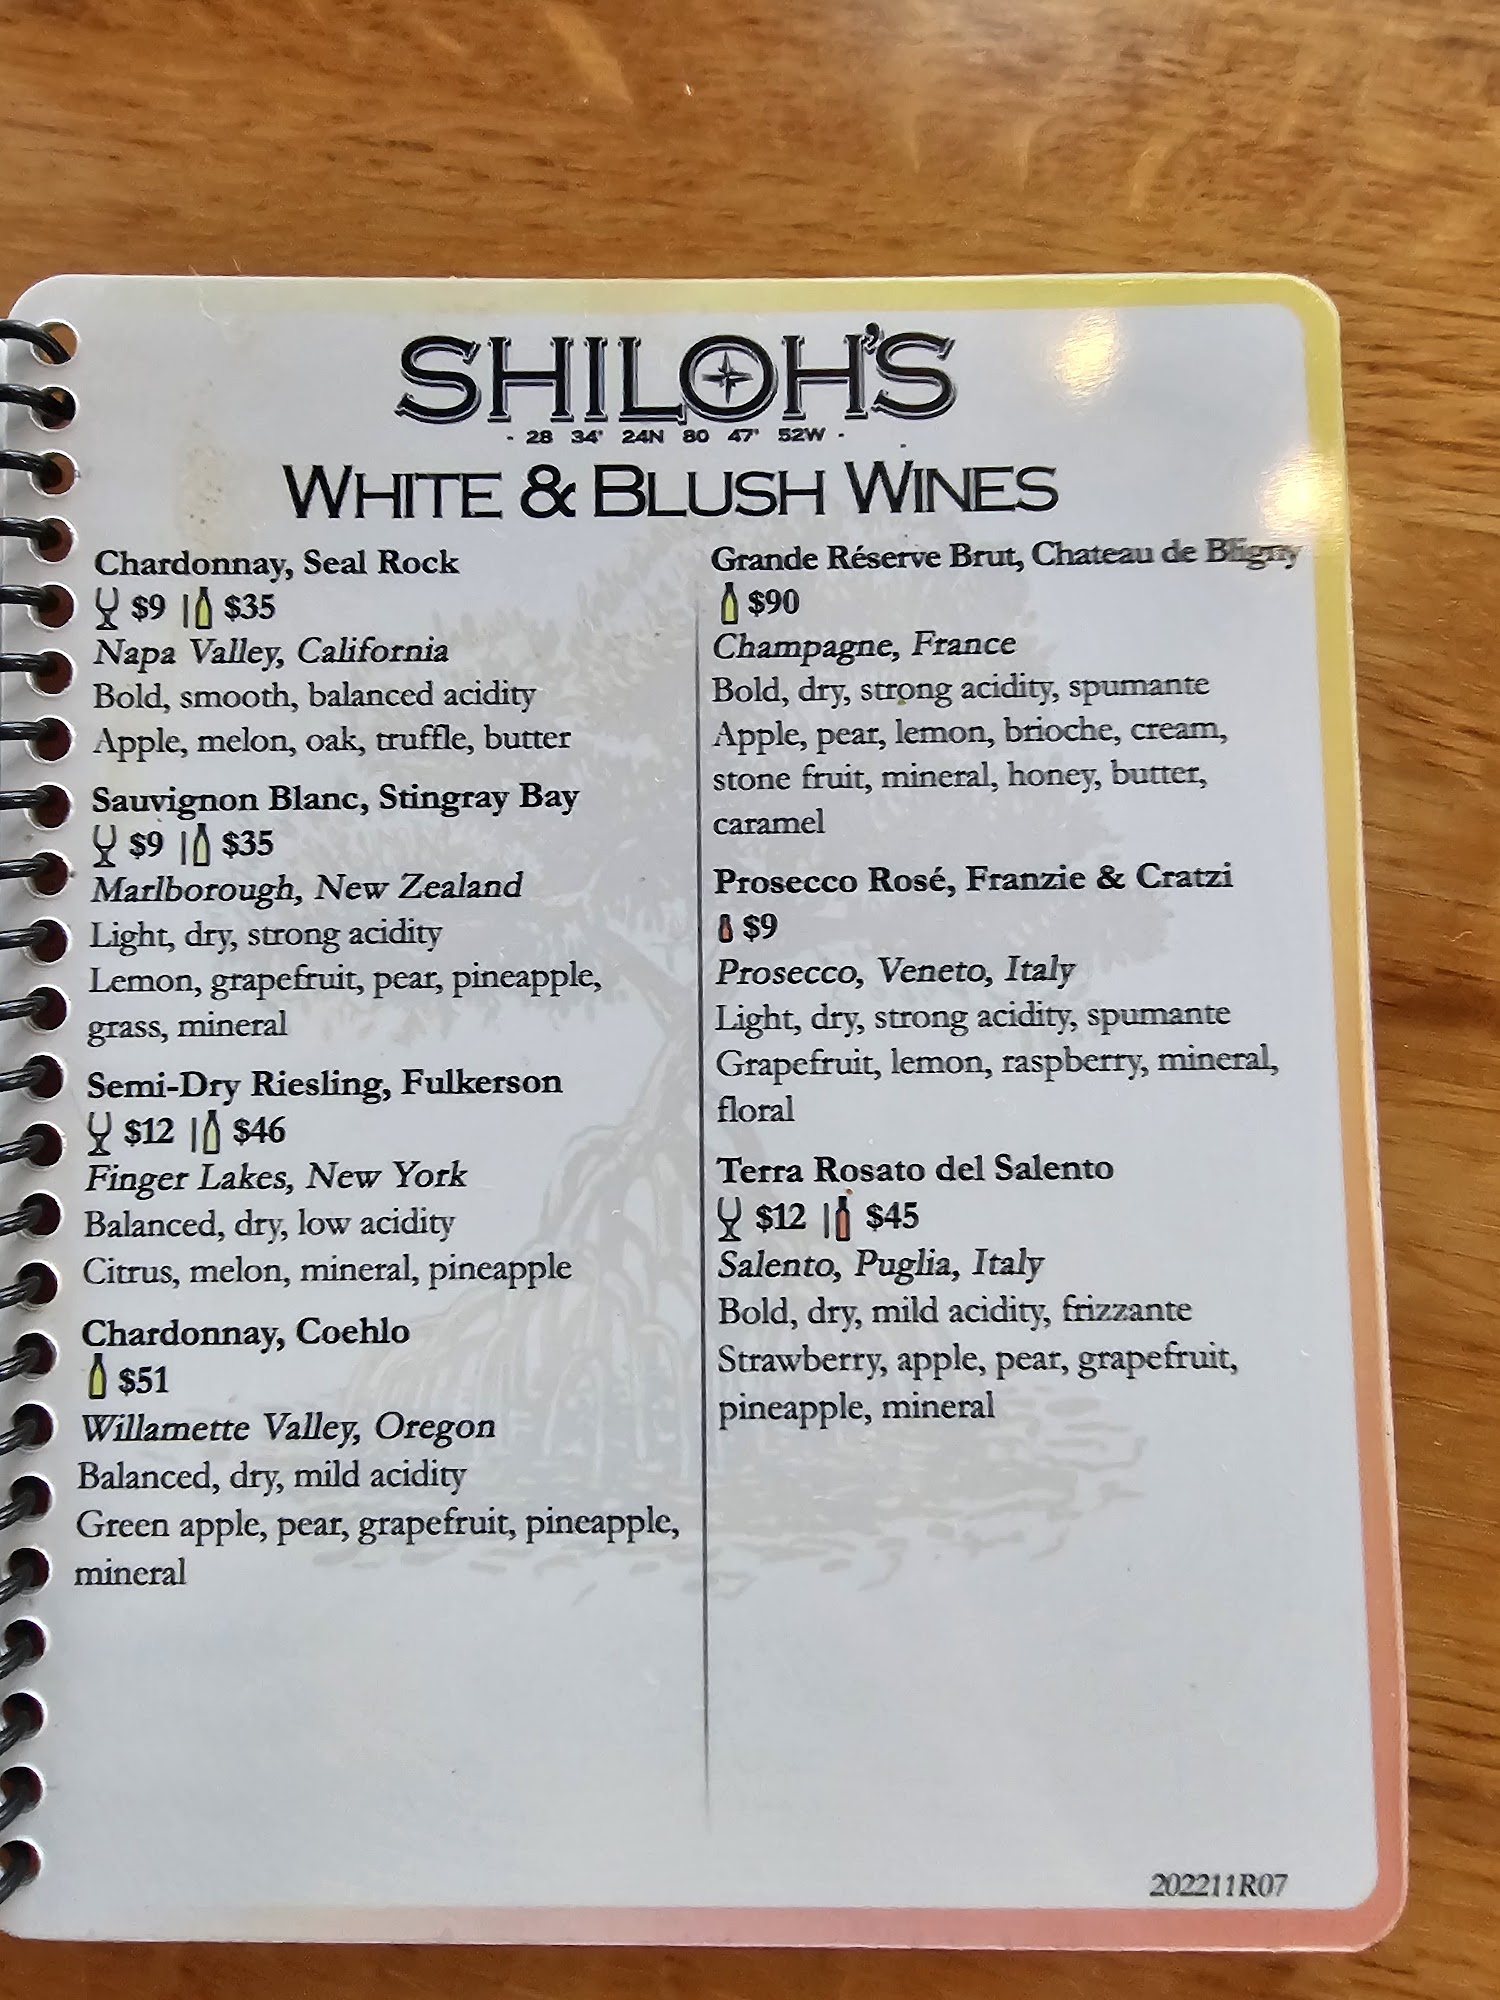 SHILOH'S
- 28 34' 24N 80 47' 52W -
WHITE & BLUSH WINES
Chardonnay, Seal Rock
$9 | $35
Napa Valley, California
Bold, smooth, balanced acidity
Apple, melon, oak, truffle, butter
Sauvignon Blanc, Stingray Bay
$9 | $35
Marlborough, New Zealand
Light, dry, strong acidity
Lemon, grapefruit, pear, pineapple,
grass, mineral
Semi-Dry Riesling, Fulkerson
$12 | $46
Finger Lakes, New York
Balanced, dry, low acidity
Citrus, melon, mineral, pineapple
Chardonnay, Coehlo
$51
Willamette Valley, Oregon
Balanced, dry, mild acidity
Green apple, pear, grapefruit, pineapple,
mineral
Grande Réserve Brut, Chateau de Bligny
$90
Champagne, France
Bold, dry, strong acidity, spumante
Apple, pear, lemon, brioche, cream,
stone fruit, mineral, honey, butter,
caramel
Prosecco Rosé, Franzie & Cratzi
$9
Prosecco, Veneto, Italy
Light, dry, strong acidity, spumante
Grapefruit, lemon, raspberry, mineral,
floral
Terra Rosato del Salento
$12 | $45
Salento, Puglia, Italy
Bold, dry, mild acidity, frizzante
Strawberry, apple, pear, grapefruit,
pineapple, mineral
202211R07